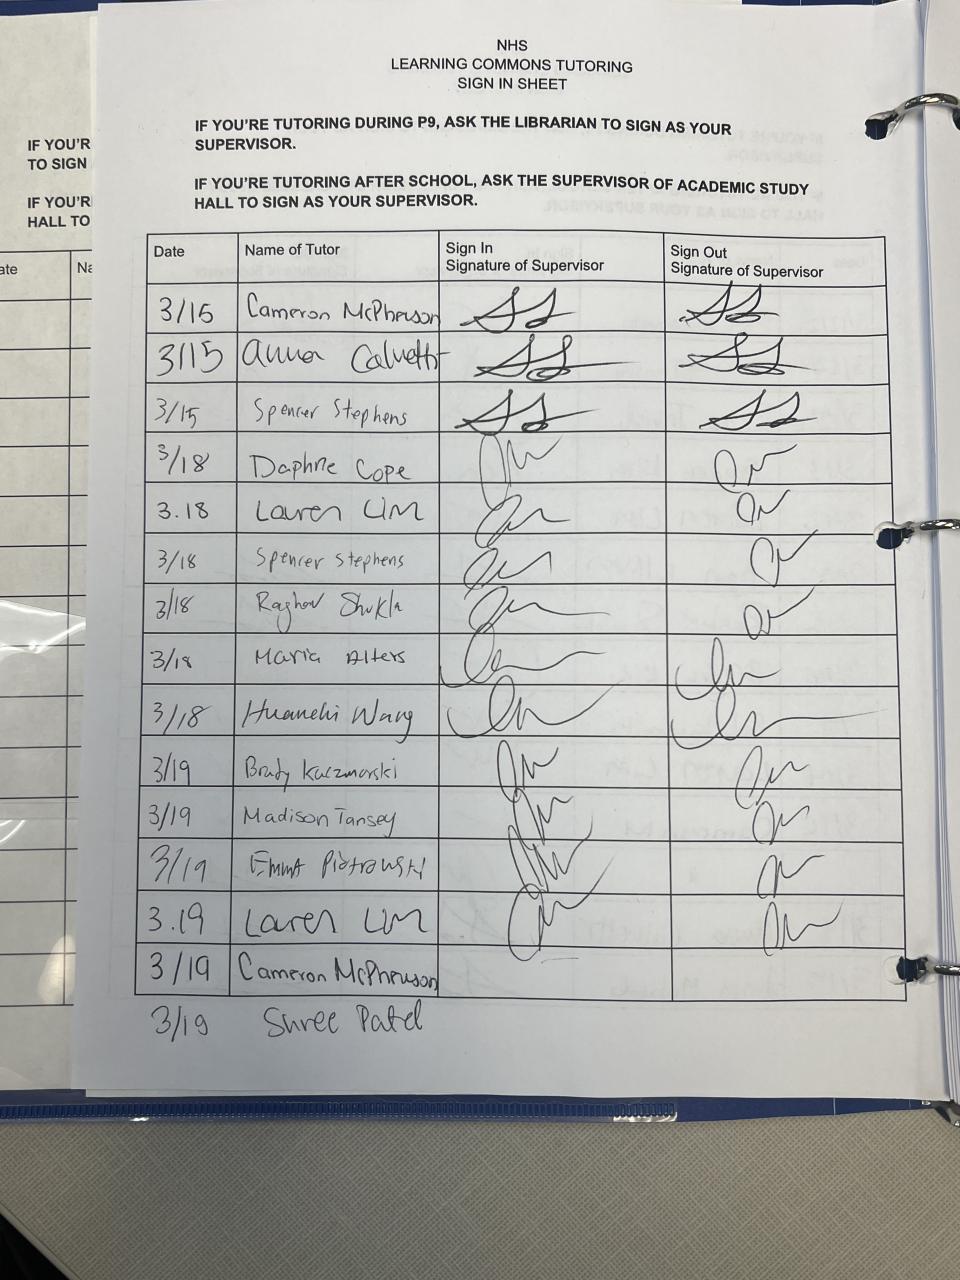 NHS
LEARNING COMMONS TUTORING
SIGN IN SHEET
IF YOU'RE TUTORING DURING P9, ASK THE LIBRARIAN TO SIGN AS YOUR
SUPERVISOR.
IF YOU'RE TUTORING AFTER SCHOOL, ASK THE SUPERVISOR OF ACADEMIC STUDY
HALL TO SIGN AS YOUR SUPERVISOR.
IF YOU'R
TO SIGN
IF YOU'R
HALL TO
ate Na
Date Name of Tutor Sign In Sign Out
Signature of Supervisor Signature of Supervisor
3/15 Cameron McPherson
3/15 Anna Calvetti
3/15 Spencer Stephens
3/18 Daphne Cope
3.18 Lauren Lim
3/18 Spencer Stephens
3/18 Raghav Shukla
3/18 Maria Alters
3/18 Huanchi Wang
3/19 Brady Kaczmarski
3/19 Madison Tansey
3/19 Emma Piotrowski
3.19 Lauren Lim
3/19 Cameron McPherson
3/19 Shree Patel